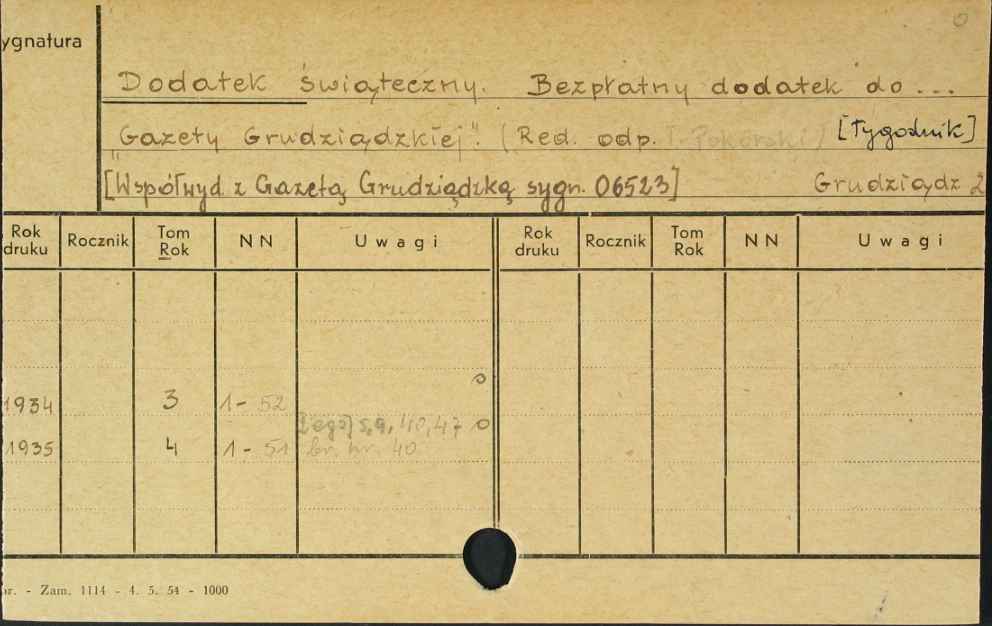 ygnatura
Dodatek świąteczny. Bezpłatny dodatek do ...
"Gazety Grudziądzkiej". (Red. odp. T. Pokorski) [Tygodnik]
[Współwyd z Gazetą Grudziądzką sygn. 06523] Grudziądz 2
Rok druku Rocznik Tom Rok NN Uwagi Rok druku Rocznik Tom Rok NN Uwagi
1934 3 1-52
5,9, 40,47
1935 4 1-51 br. nr. 40
r. - Zam. 1114 - 4. 5. 54 - 1000